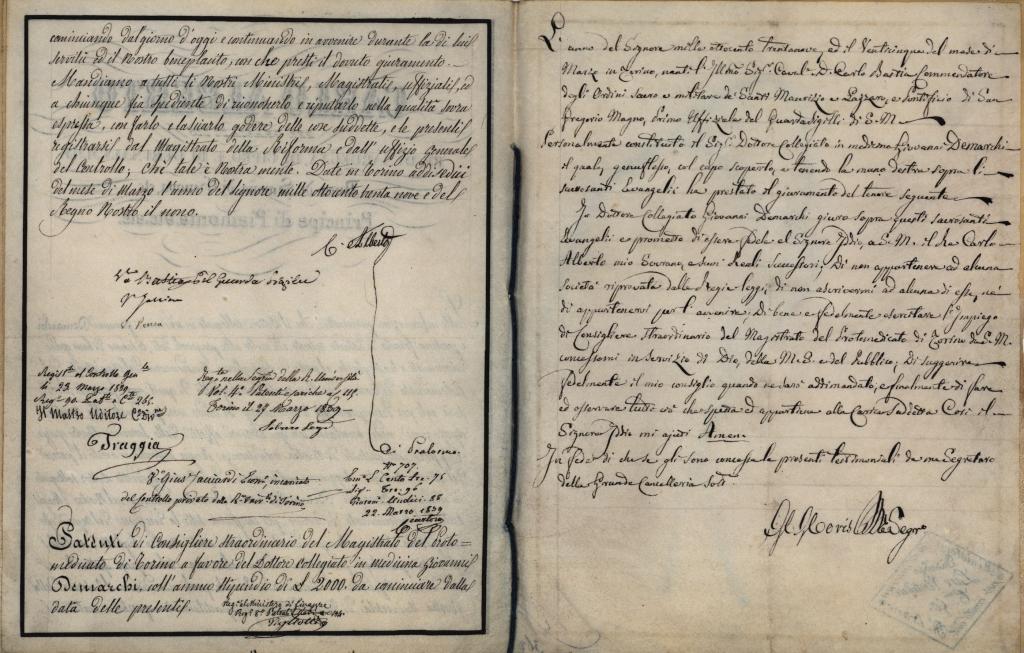 cominciando dal giorno d'oggi e continuando in avvenire durante la di lui
servitù ed il Nostro beneplacito, con che presti il dovuto giuramento.
Mandiamo a tutti li Nostri Ministri, Magistrati, uffiziali, ed
a chiunque fia spediente di riconoscerlo e riputarlo nella qualità sovra
espressa, con farlo e lasciarlo godere delle cose suddette, e le presenti
registrarsi dal Magistrato della Riforma e dall' uffizio generale
del Controllo; Chè tale è Nostra mente. Date in Torino addì sedici
del mese di Marzo l'anno del Signore mille ottocento trenta nove e del
Regno Nostro il nono.
C. Alberto
Vª Bastia
Registº al Controllo
li 23 Marzo 1839
Regº 90
Traggia
Regte nella Segria della R. Università
Vol. 4. Patenti
Torino il 29 Marzo 1839
Di Pralormo
Nº 707.
22 Marzo 1839
del Controllo
Patenti di Consigliere straordinario del Magistrato del Proto-
medicato di Torino a favore del Dottore Collegiato in medicina Giovanni
Demarchi, coll' annuo stipendio di L 2000. da cominciare dalla
data delle presenti.
L'anno del Signore mille ottocento trentanove, ed il Ventcinque del mese di
Marzo in Torino, nanti l'Illmo Sigr Cavalre D. Carlo Bastia Commendatore
degli Ordini Sacro e militare de' Santi Maurizio e Lazzaro, e Pontificio di San
Gregorio Magno, Primo Uffiziale del Guardasigilli di S. M.
Personalmente constituito il Sigr Dottore Collegiato in medicina Giovanni Demarchi
il quale, genuflesso, col capo scoperto, e tenendo la mano destra sopra li
sacrosanti Evangelii ha prestato il giuramento del tenore seguente
Io Dottore Collegiato Giovanni Demarchi giuro sopra questi Sacrosanti
Evangelii e prometto di essere fedele al Signore Iddio, a S. M. il Re Carlo
Alberto mio Sovrano, e suoi Reali Successori; Di non appartenere ad alcuna
società riprovata dalle Regie leggi, di non ascrivermi ad alcuna di esse, nè
di appartenervi per l'avvenire; Di bene e fedelmente esercitare l'Impiego
di Consigliere Straordinario del Magistrato del Protomedicato di Torino da S. M.
concessomi in servizio di Dio, della M. S. e del Pubblico; Di suggerire
fedelmente il mio consiglio quando ne sarò addimandato, e finalmente di fare
ed osservare tutto ciò che spetta ed appartiene alla Carica suddetta Così il
Signore Iddio mi ajuti Amen
In fede di che se gli sono concesse le presenti testimoniali da me Segretaro
della Grande Cancelleria Sott.